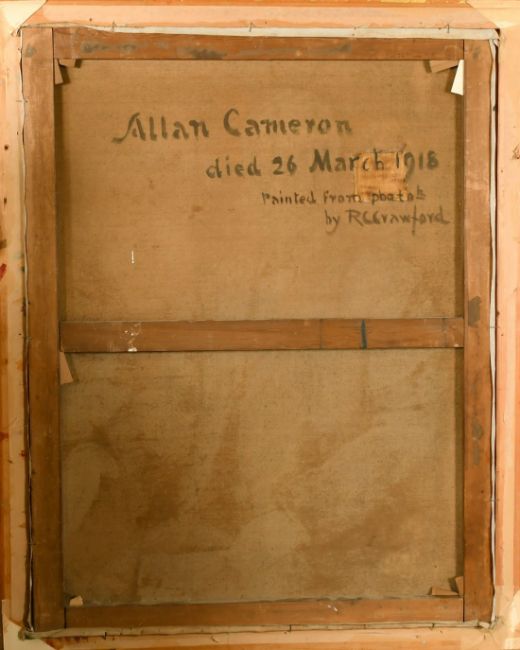 Allan Cameron
died 26 March 1918
Painted from photos
by R C Crawford